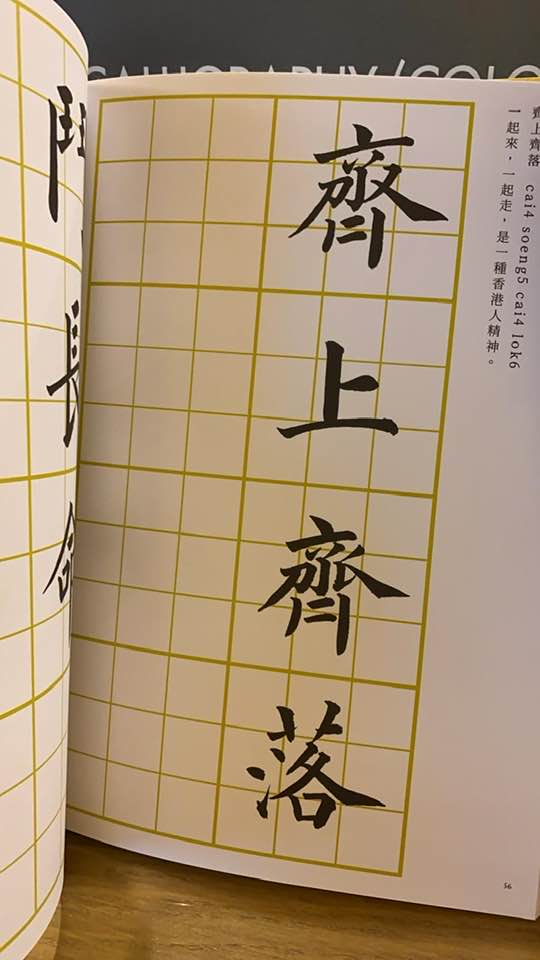 CALLIGRAPHY/COLO
齊上齊落 cai4 soeng5 cai4 lok6
一起來，一起走，是一種香港人精神。
齊上齊落
鬥長命
56